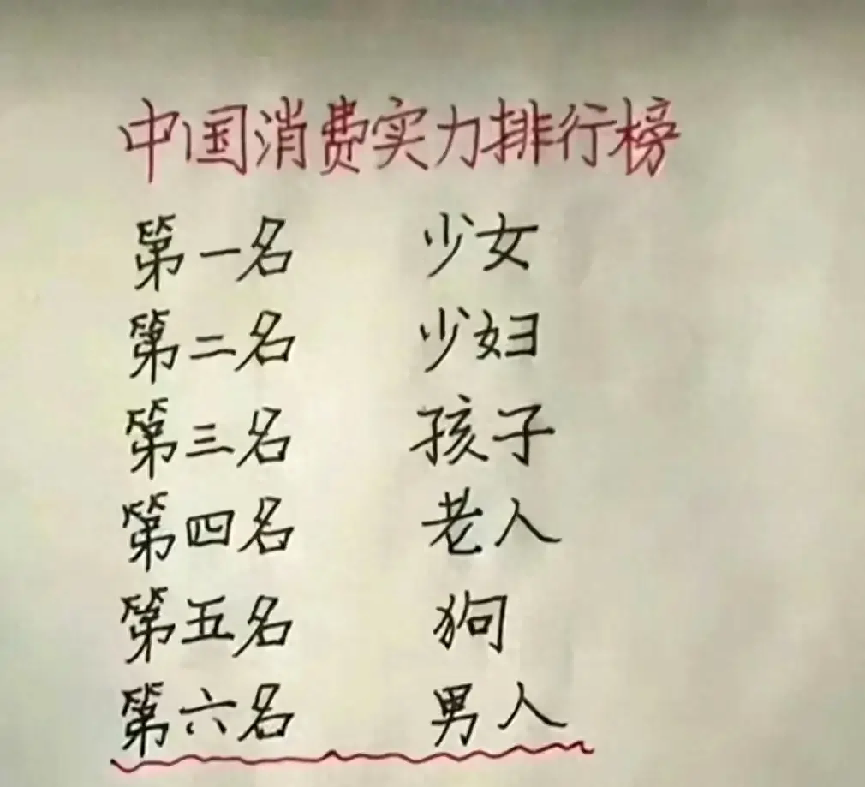 中国消费实力排行榜
第一名 少女
第二名 少妇
第三名 孩子
第四名 老人
第五名 狗
第六名 男人